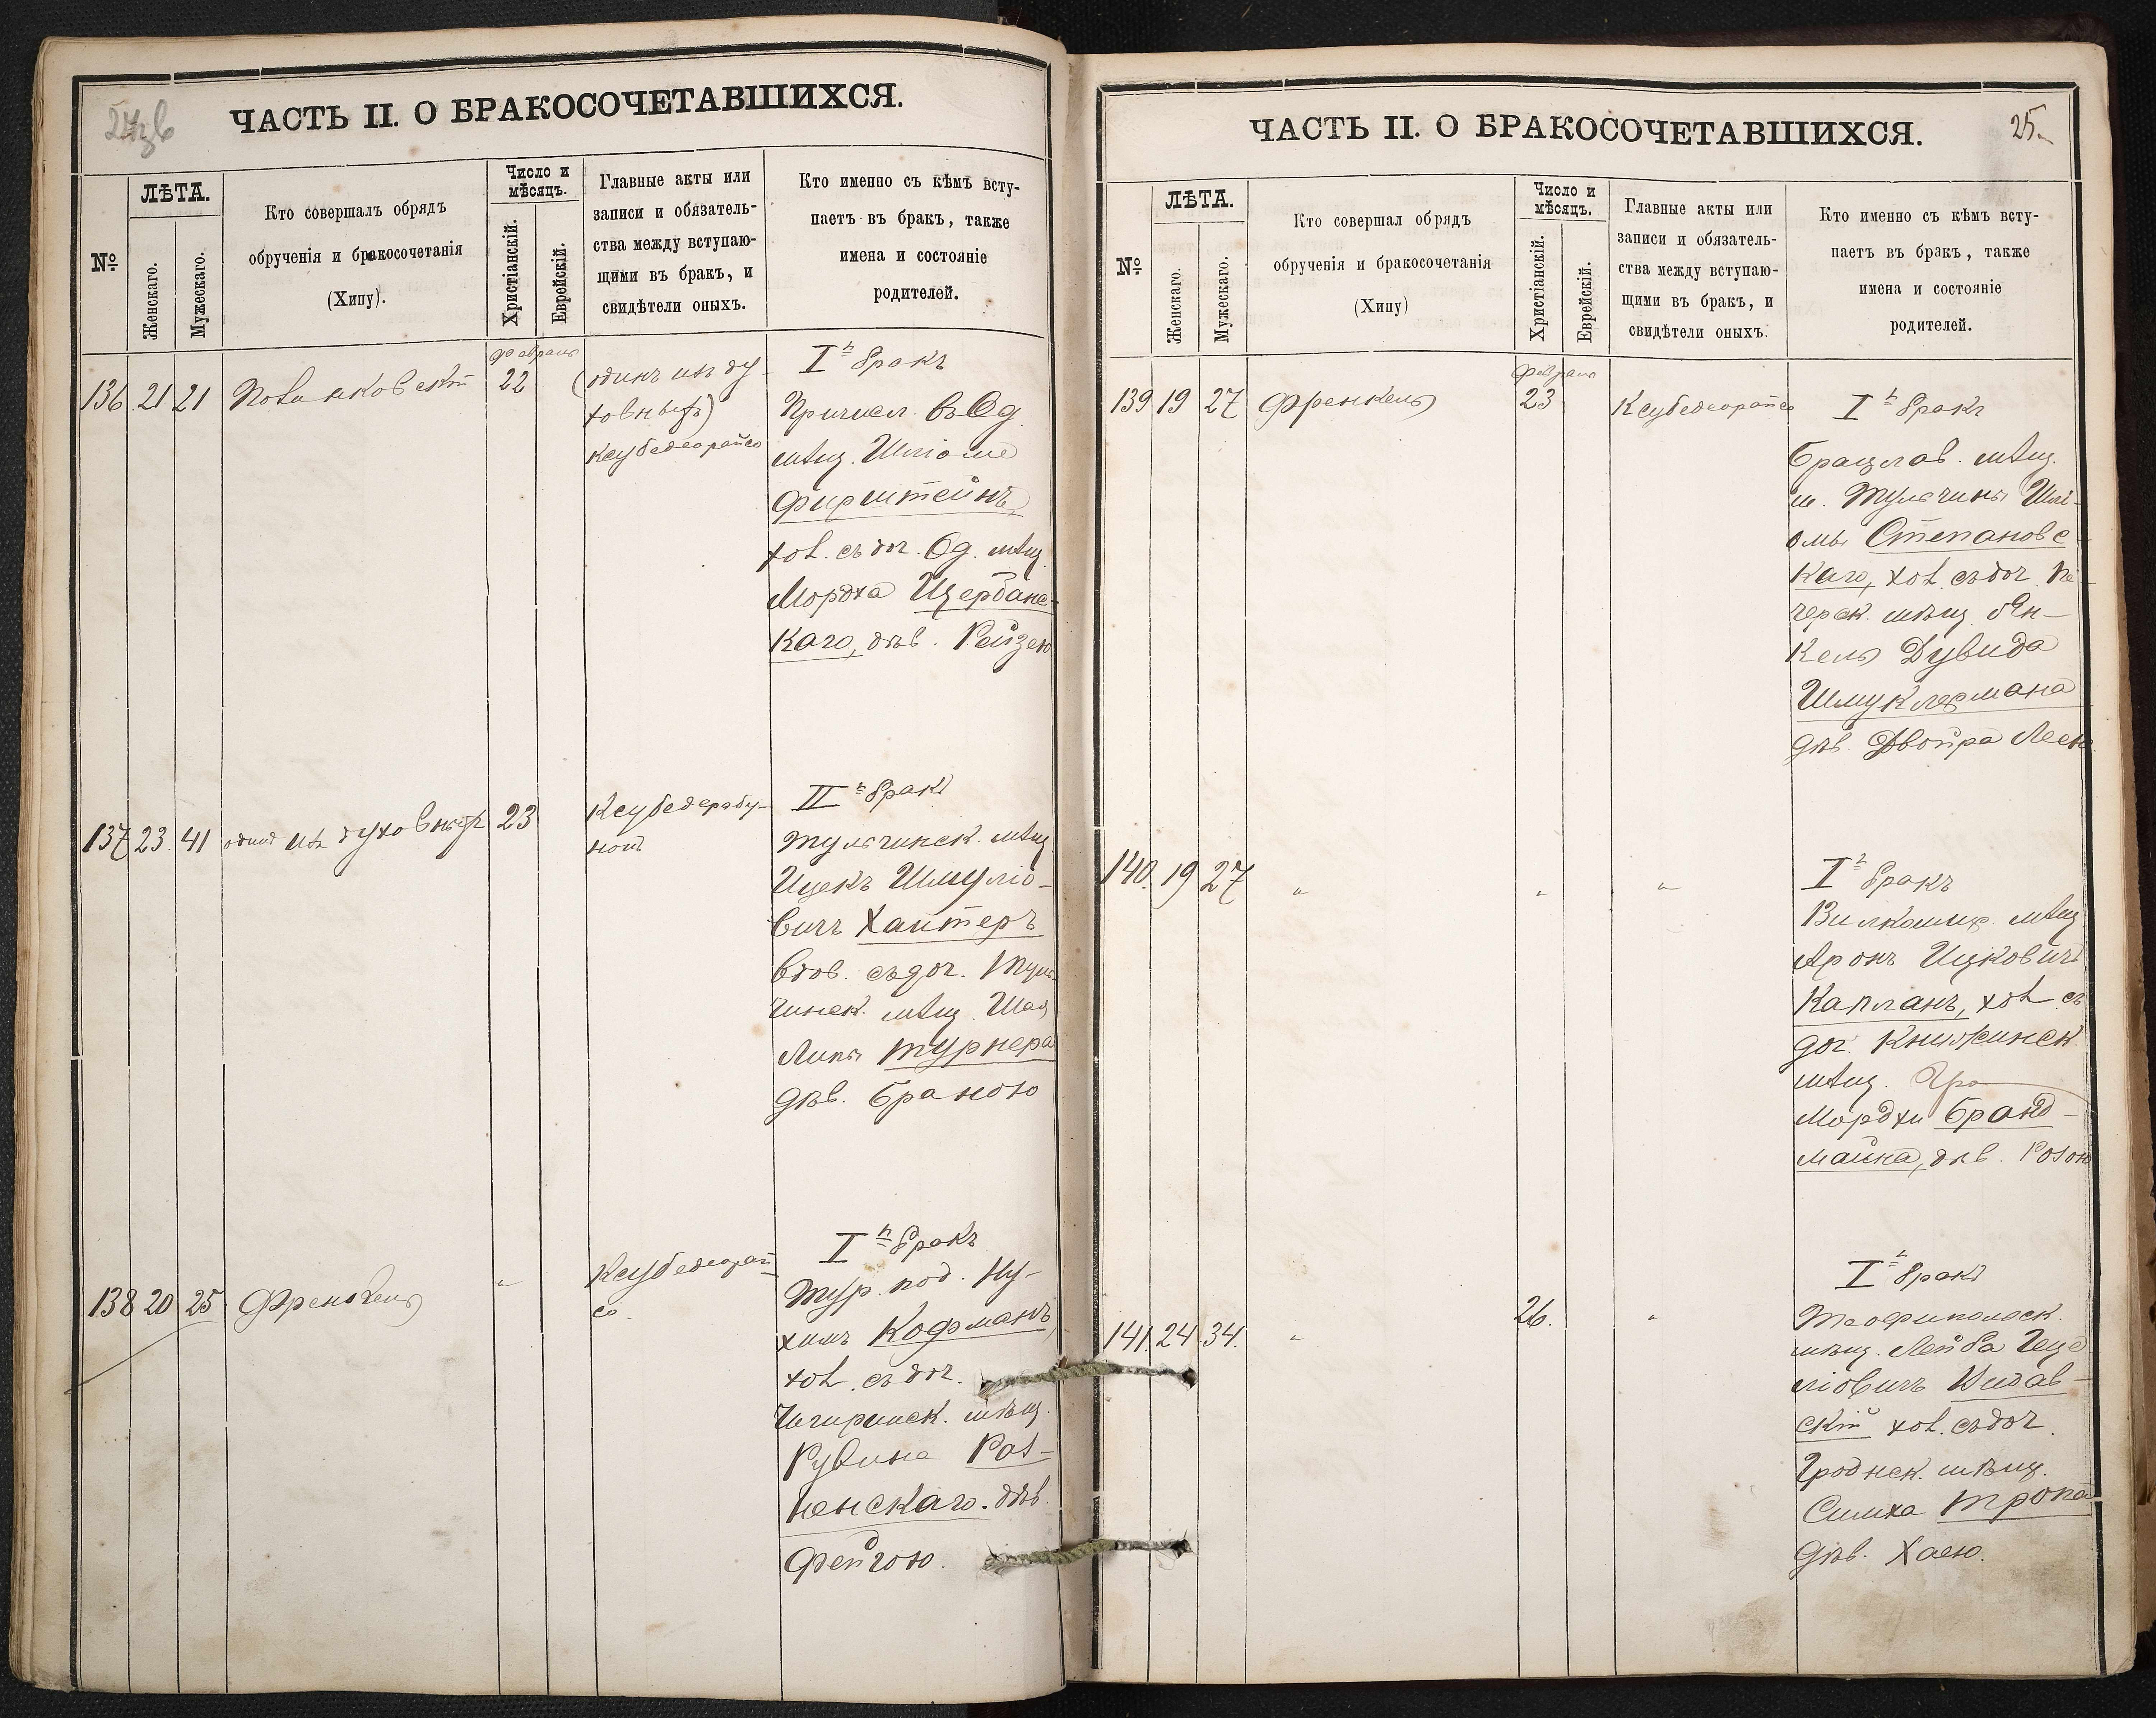 ЧАСТЬ II. О БРАКОСОЧЕТАВШИХСЯ.
№
ЛѢТА.
Женскаго.
Мужескаго.
Кто совершалъ обрядъ
обрученія и бракосочетанія
(Хипу).
Число и
мѣсяцъ.
Христіанскій.
Еврейскій.
Главные акты или
записи и обязатель-
ства между вступаю-
щими въ бракъ, и
свидѣтели оныхъ.
Кто именно съ кѣмъ всту-
паетъ въ бракъ, также
имена и состояніе
родителей.
136 21 21
февраля
22
(одинъ изъ ду-
ховныхъ)
Ксубедеорайсо
I й бракъ
Причисл. въ Од.
мѣщ. Шліоме
Фирштейнъ,
хол. съ доч. Од. мѣщ.
Мордха Щербанс-
каго, дѣв. Рейзею
137 23 41 одинъ изъ духовныхъ 23
Ксубедерабу-
нонъ
II й бракъ
Тульчинск. мѣщ.
Ицекъ Шмуліо-
вичъ Хаитеръ
вдов. съ доч. Туль-
чинск. мѣщ. Шая
Липы Турнера
дѣв. Браною
138 20 25 Френкель "
Ксубедеорай-
со.
I й бракъ
Тур. под. Ну-
химъ Кофманъ,
хол. съ доч.
Чигиринск. мѣщ.
Рувина Раз-
ненскаго. дѣв.
Фейгою.
ЧАСТЬ II. О БРАКОСОЧЕТАВШИХСЯ.
25.
№
ЛѢТА.
Женскаго.
Мужескаго.
Кто совершал обрядъ
обрученія и бракосочетанія
(Хипу)
Число и
мѣсяцъ.
Христіанскій.
Еврейскій.
Главные акты или
записи и обязатель-
ства между вступаю-
щими въ бракъ, и
свидѣтели оныхъ.
Кто именно съ кѣмъ всту-
паетъ въ бракъ, также
имена и состояніе
родителей.
139 19 27 Френкель
февраля
23
Ксубедеорайсо
I й бракъ
Брацлав. мѣщ.
м. Тульчина Шлі-
омы Степановс-
каго, хол. съ доч. Пе-
черск. мѣщ. Ян-
кель Дувида
Шмуклермана
дѣв. Двойра Леею
140. 19 27 " " "
I й бракъ
Вилкомир. мѣщ.
Аронъ Ицковичъ
Капланъ, хол. съ
доч. Книжинск.
мѣщ.
Мордхи Бранд-
майна, дѣв. Розою
141. 24 34. " 26. "
I й бракъ
Теофипольск.
мѣщ. Лейба Геце-
ліовичъ Видав-
скій хол. съ доч.
Гроднск. мѣщ.
Симха Тропа
дѣв. Хаею.